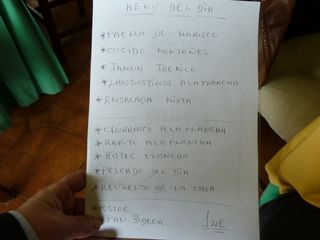 MENU DEL DIA
* PAELLA DE MARISCO
* COCIDO MONTAÑES
* JAMON IBERICO
* LANGOSTINOS A LA PLANCHA
* ENSALADA MIXTA
* CHURRASCO A LA PLANCHA
* RAPITO A LA PLANCHA.
* BISTEC PLANCHA
* PESCADO DEL DIA
* REVUELTO DE LA CASA
* POSTRE
* PAN. BEBIDA. 12€